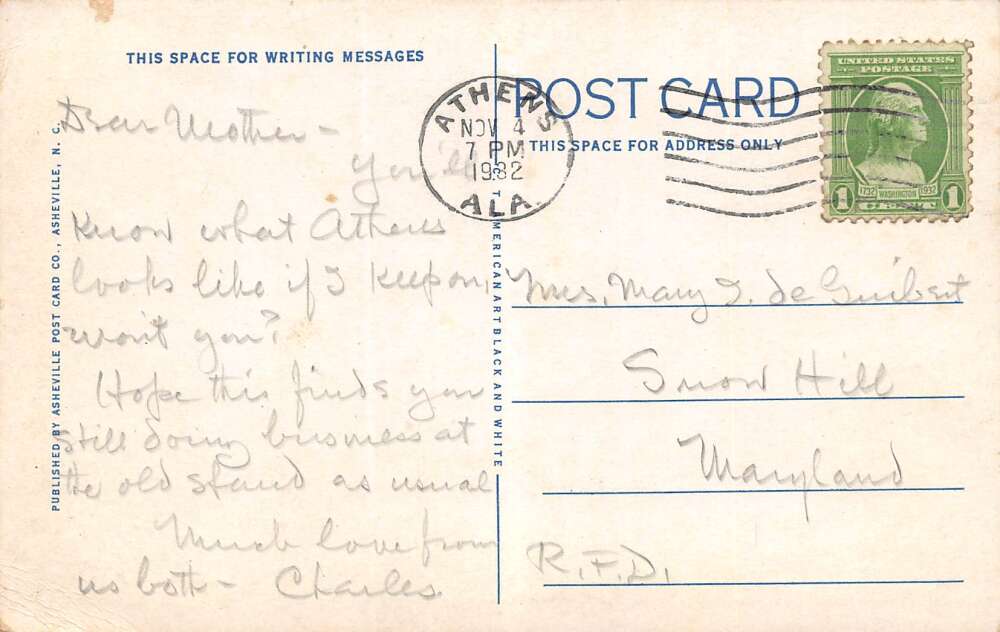 THIS SPACE FOR WRITING MESSAGES
POST CARD
THIS SPACE FOR ADDRESS ONLY
ATHENS
NOV 4
7 PM
1932
ALA.
UNITED STATES
POSTAGE
1732 WASHINGTON 1932
1 CENT 1
PUBLISHED BY ASHEVILLE POST CARD CO., ASHEVILLE, N. C.
AMERICAN ART BLACK AND WHITE
Dear Mother –
You'll
Know what Athens
looks like if I keep on,
won't you?
Hope this finds you
still doing business at
the old stand as usual
Much love from
us both – Charles.
Mrs. Mary I. de Guibert
Snow Hill
Maryland
R.F.D.